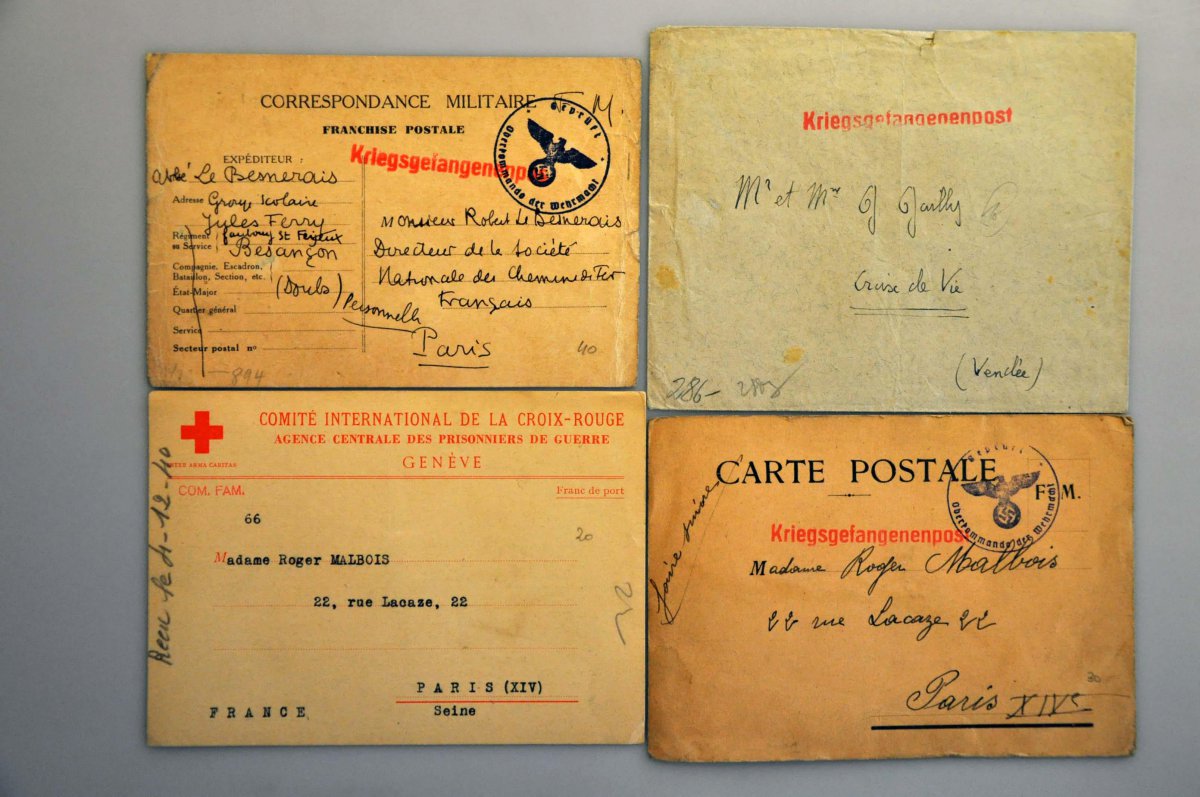 CORRESPONDANCE MILITAIRE F. M.
FRANCHISE POSTALE
Kriegsgefangenenpost
Geprüft
Oberkommando der Wehrmacht
EXPÉDITEUR :
Abbé Le Besnerais
Adresse Group Scolaire
Jules Ferry
Régiment
ou Service :
faubourg St
Besançon
Compagnie, Escadron,
Bataillon, Section, etc.
(Doubs)
État-Major
Quartier général
Service
Secteur postal n°
Monsieur Robert Le Besnerais
Directeur de la Société
Nationale des Chemins de Fer
Français
Personnelle
Paris
40
894
Kriegsgefangenenpost
Mr et Mme J
Croix de Vie
(Vendée)
286-
COMITÉ INTERNATIONAL DE LA CROIX-ROUGE
AGENCE CENTRALE DES PRISONNIERS DE GUERRE
GENÈVE
INTER ARMA CARITAS
COM. FAM.
Franc de port
66
20
Madame Roger MALBOIS
22, rue Lacaze, 22
PARIS (XIV)
FRANCE
Seine
Reçu le 4-12-40
CARTE POSTALE
F. M.
Geprüft
Oberkommando der Wehrmacht
Kriegsgefangenenpost
Madame Roger Malbois
22 rue Lacaze 22
30
Paris XIVe